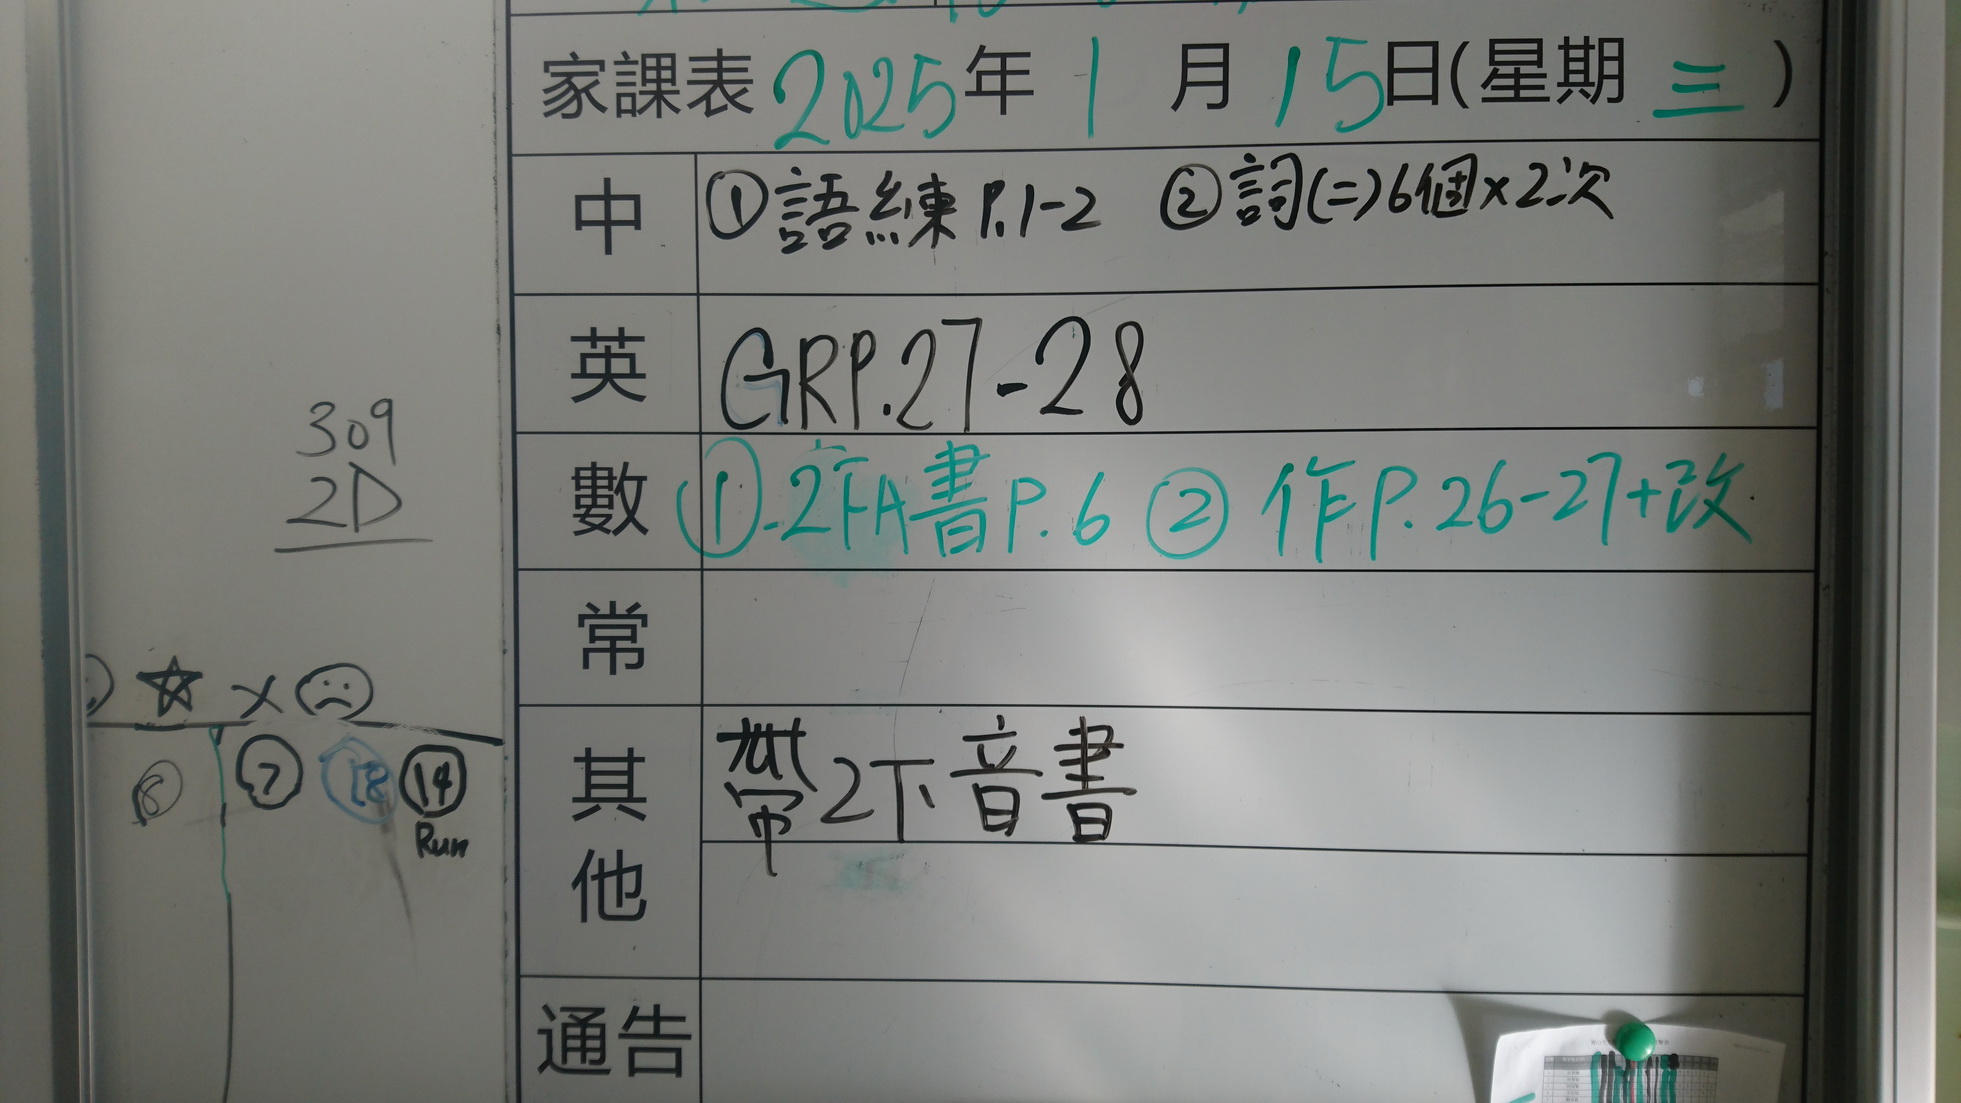 家課表 2025年 1 月 15日(星期 三 )
中 ①語練 P.1-2 ②詞(二)6個×2次
英 GRP.27-28
數 ①2下A書P.6 ② 作P.26-27+改
常
其他 帶2下音書
通告
309
2D
6 7 18 14
Run